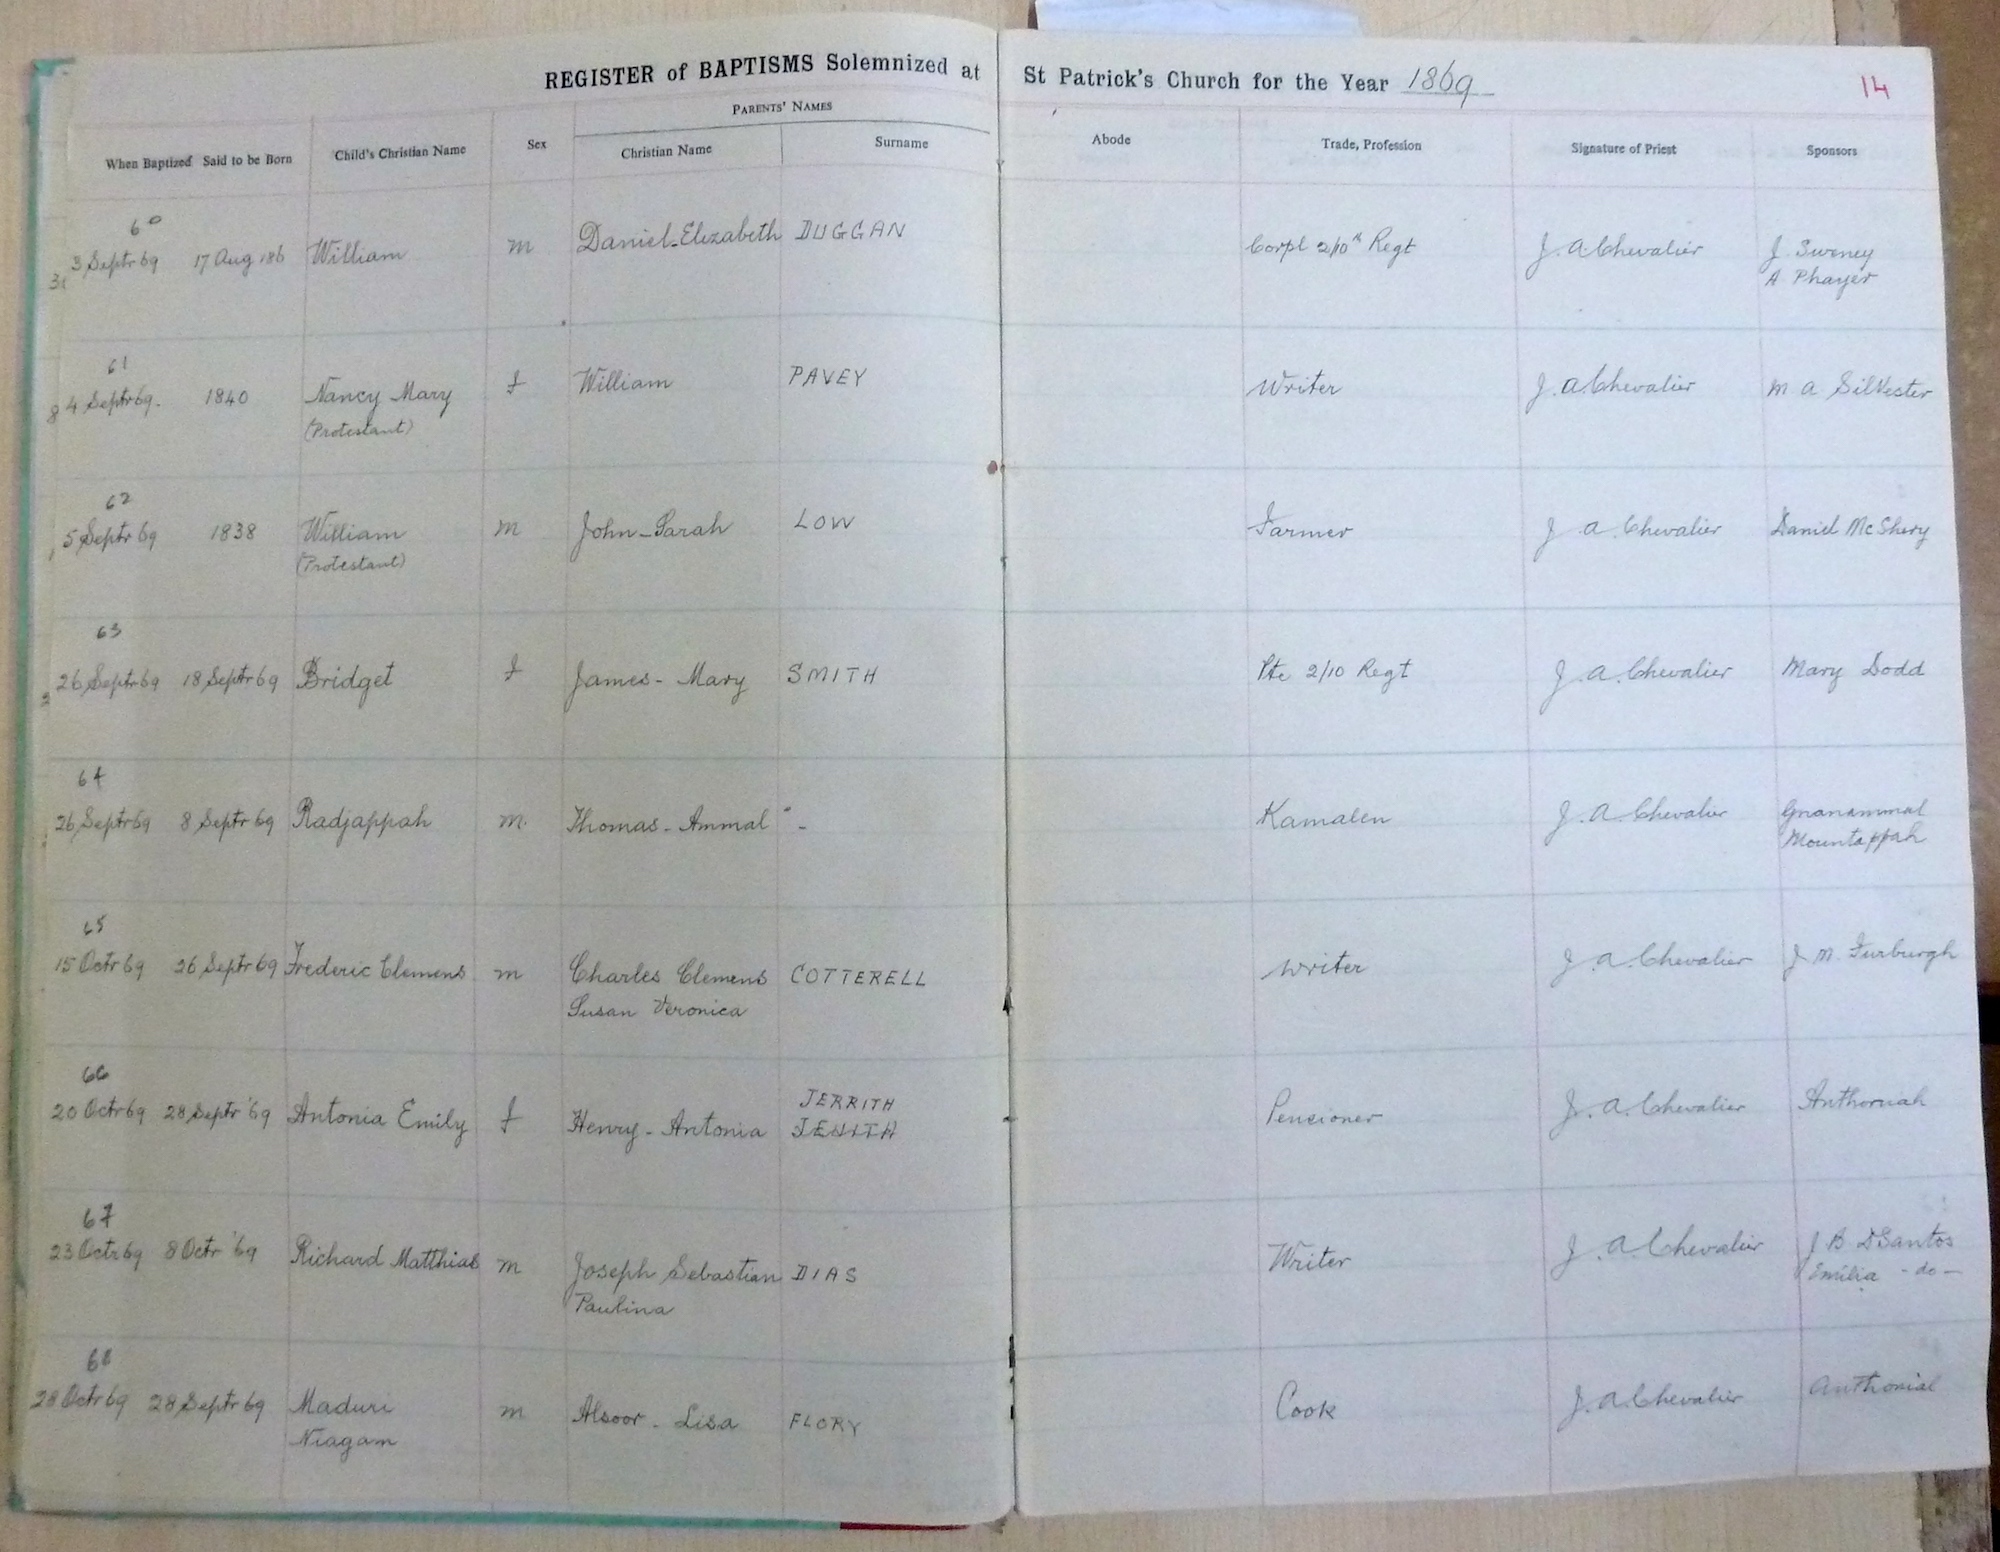 REGISTER of BAPTISMS Solemnized at St Patrick's Church for the Year 1869
14
PARENTS' NAMES
When Baptized Said to be Born Child's Christian Name Sex Christian Name Surname Abode Trade, Profession Signature of Priest Sponsors
60
3 Septr 69 17 Aug 186 William m Daniel-Elizabeth DUGGAN Corpl 2/10th Regt J. A. Chevalier J Sweney
A Phayer
61
4 Septr 69. 1840 Nancy Mary f William PAVEY Writer J. A. Chevalier M A SilVester
(Protestant)
62
5 Septr 69 1838 William m John-Sarah LOW Farmer J A Chevalier Daniel McShery
(Protestant)
63
26 Septr 69 18 Septr 69 Bridget f James- Mary SMITH Pte 2/10 Regt J. A. Chevalier Mary Dodd
64
26 Septr 69 8 Septr 69 Radjappah m Thomas- Ammal " - Kamalen J. A. Chevalier Gnanammal
Mountappah
65
15 Octr 69 26 Septr 69 Frederic Clemens m Charles Clemens COTTERELL writer J. A. Chevalier J M. Furburgh
Susan Veronica
66
JERRITH
20 Octr 69 28 Septr '69 Antonia Emily f Henry- Antonia Pencioner J. A. Chevalier
67
23 Octr 69 8 Octr '69 Richard Matthias m Joseph Sebastian DIAS Writer J. A. Chevalier J B DSantos
Paulina Emilia -do-
68
28 Octr 69 28 Septr 69 Maduri m Alsoor - Lisa FLORY Cook J. A. Chevalier Anthonial
Niagam